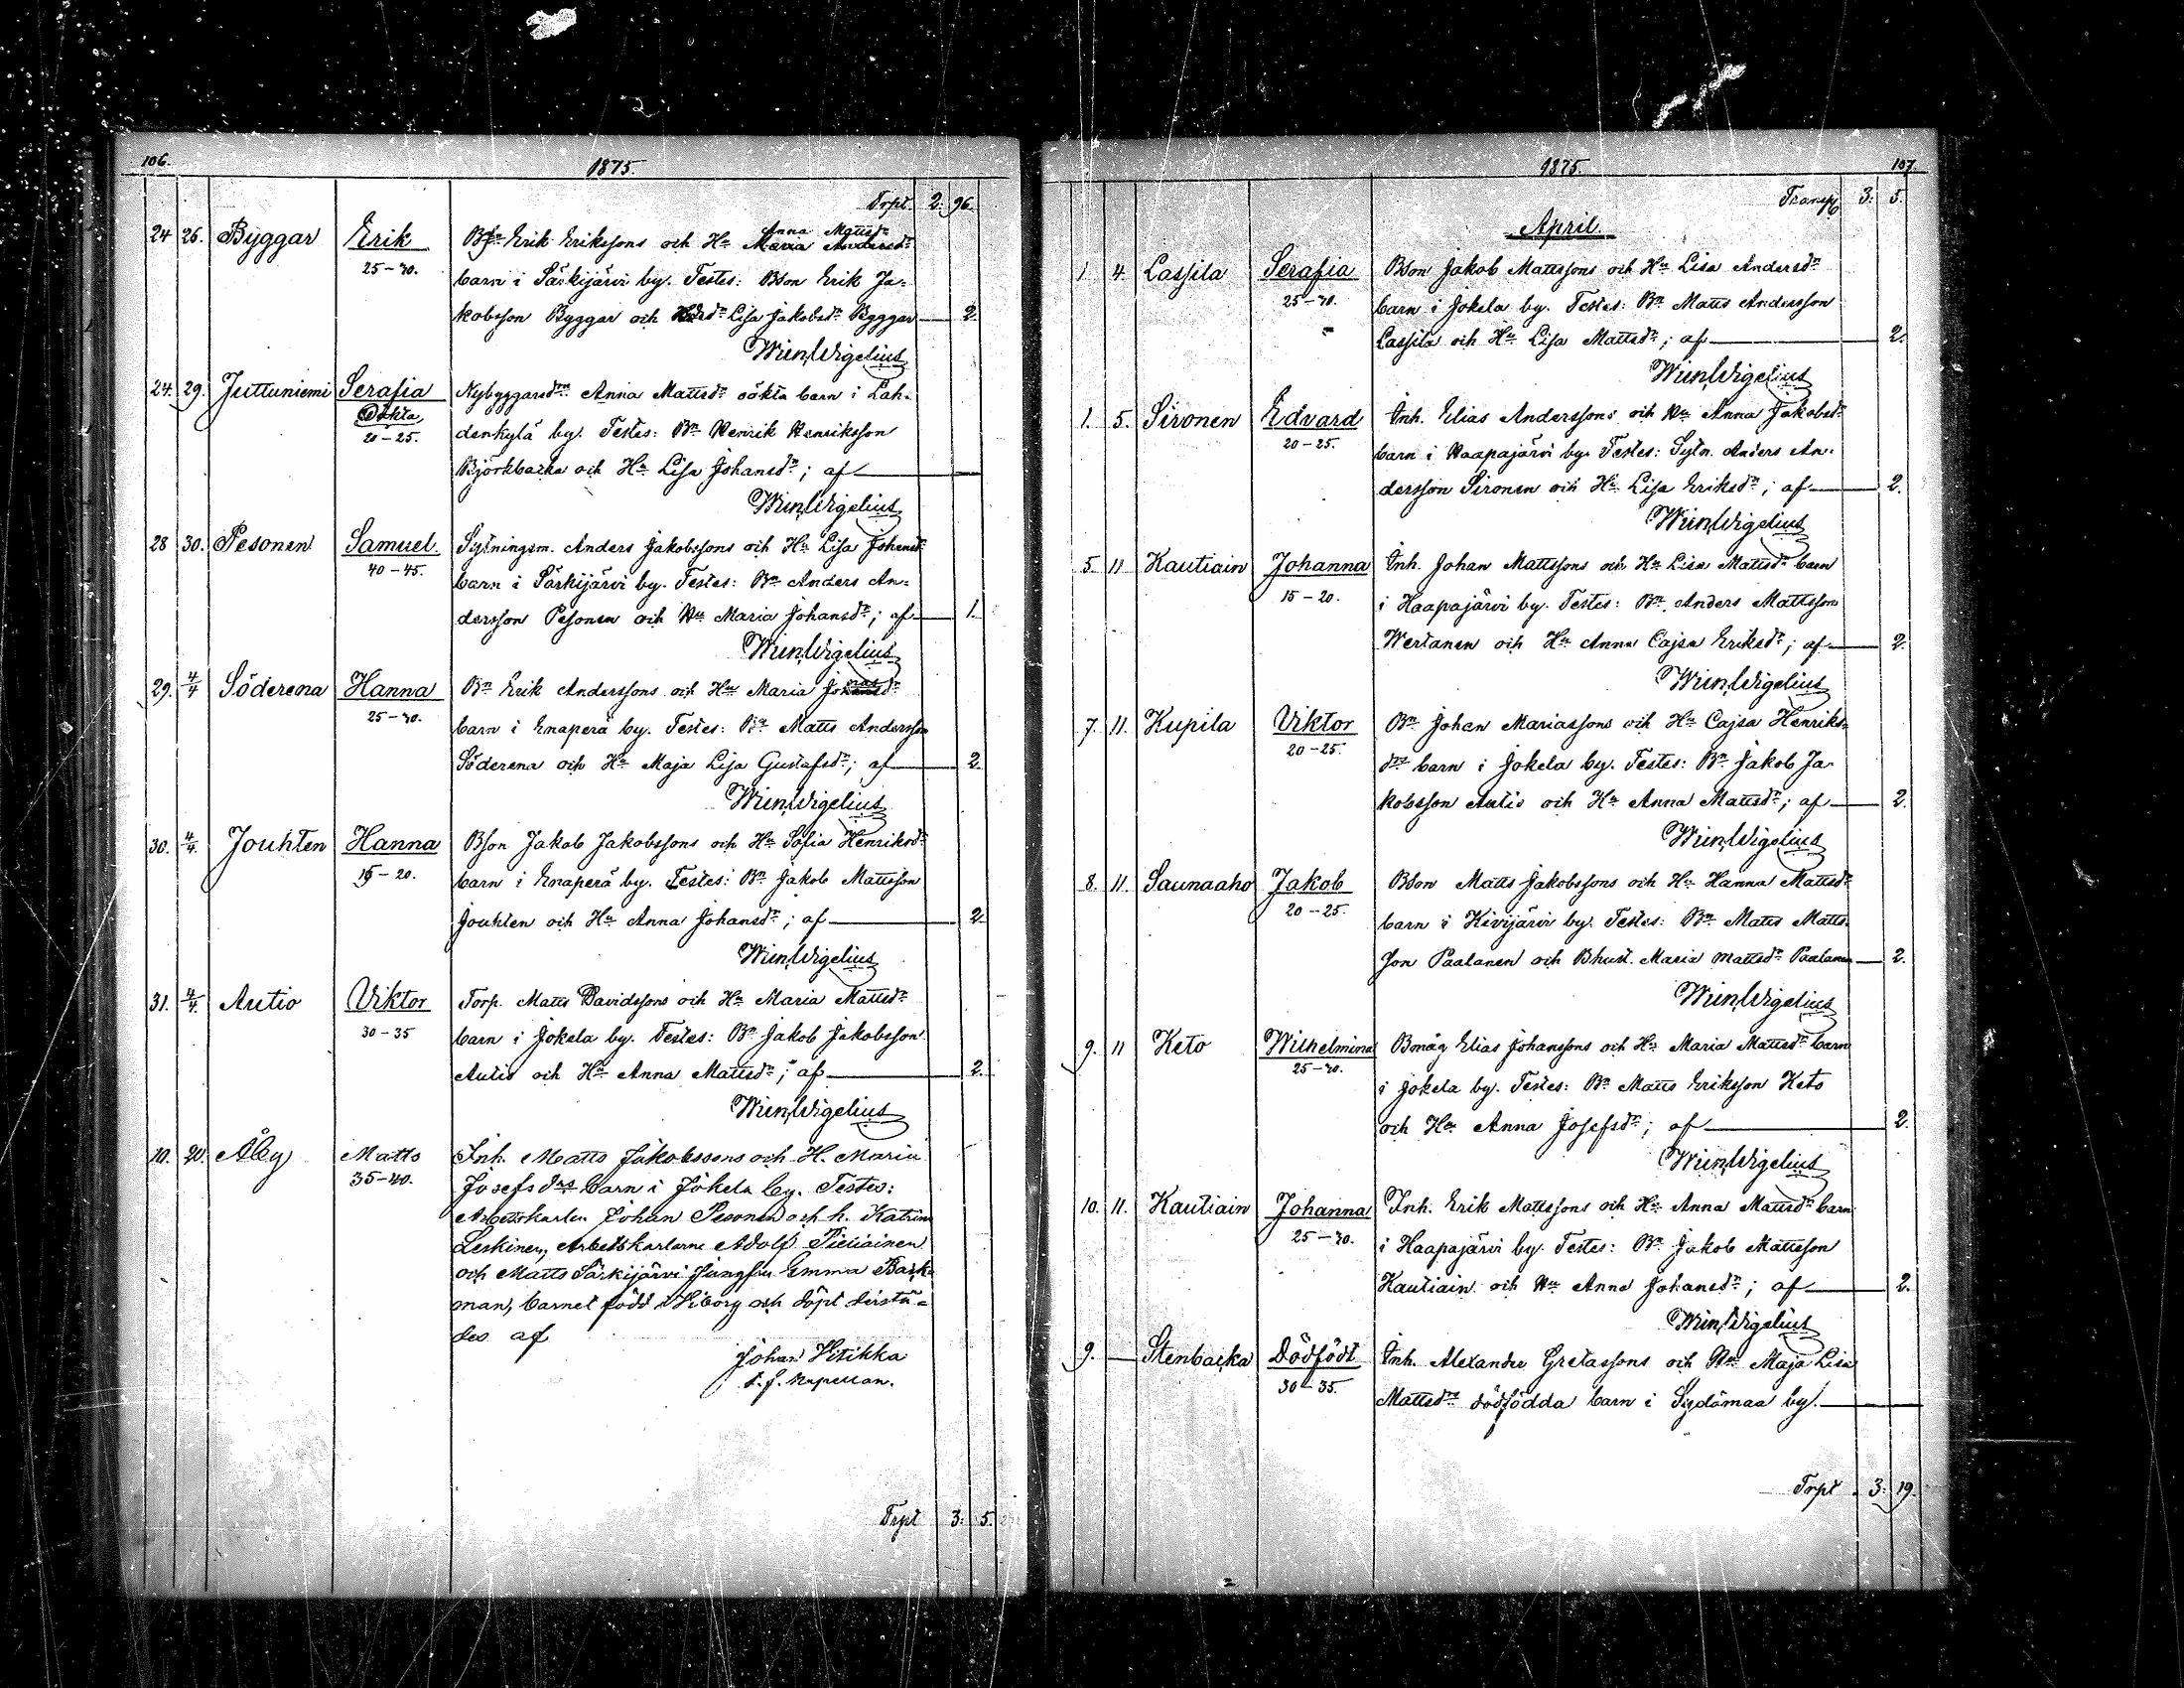 106.
1875.
Trpt. 2. 96.
24 26. Byggar Erik Bde Erik Erikssons och Hu Maria Andersdr
Anna Mattsdr
25-30. barn i Särkijärvi by. Testes: Bson Erik Ja=
kobsson Byggar och Lisa Jakobsdr Byggar 2.
Wim Wigelius
24. 29. Juttuniemi Serafia Nybyggaredrs Anna Mattsdr oäkta barn i Lah=
Oäkta
20-25. denkylä by. Testes: Bn Henrik Henriksson
Björkbacka och Hu Lisa Johansdr; af
Wim Wigelius
28 30. Pesonen Samuel. Sytningsm. Anders Jakobssons och Hu Lisa Johansdr
40-45. barn i Särkijärvi by. Testes: Bn Anders An=
dersson Pesonen och Hu Maria Johansdr; af 1.
Wim Wigelius
29. 4/4 Söderena Hanna Bn Erik Anderssons och Hu Maria
25-30. barn i Enaperä by. Testes: Bn Matts Andersson
Söderena och Hu Maja Lisa Gustafsdr; af 2.
Wim Wigelius
30. 4/4. Jouhten Hanna Bson Jakob Jakobssons och Hu Sofia Henriksdr
15-20. barn i Enaperä by. Testes: Bn Jakob Mattsson
Jouhten och Hu Anna Johansdr; af 2.
Wim Wigelius
31. 4/4. Autio Viktor Torp. Matts Davidssons och Hu Maria Mattsdr
30-35 barn i Jokela by. Testes: Bn Jakob Jakobsson
Autio och Hu Anna Mattsdr; af 2.
Wim Wigelius
10. 20. Åby Matts Inh. Matts Jakobssons och H. Maria
35-40. Josefsdrs barn i Jokela by. Testes:
Arbetskarlen Johan Pesonen och h. Katrina
Leskinen, Arbetskarlarne Adolf Pieliainen
och Matts Särkijärvi Jungfru Emma Back=
man, barnet född i Viborg och döpt derstä=
des af
Johan Hitikka
Trpt 3. 5.
1875. 107.
Transp 3. 5.
April.
1. 4. Lassila Serafia Bson Jakob Mattssons och Hu Lisa Andersdr
25-30. barn i Jokela by. Testes: Bn Matts Andersson
Lassila och Hu Lisa Mattsdr; af 2.
Wim Wigelius
1. 5. Sironen Edvard Inh. Elias Anderssons och Hu Anna Jakobsdr
20-25. barn i Haapajärvi by. Testes: Sytn. Anders An=
dersson Sironen och Hu Lisa Eriksdr; af 2.
Wim Wigelius
5. 11 Kautiain Johanna Inh. Johan Mattssons och Hu Lisa Mattsdr barn
15-20. i Haapajärvi by. Testes: Bn. Anders Mattsson
Wertanen och Hu Anna Cajsa Eriksdr; af 2.
Wim Wigelius
7. 11. Kupila Viktor Bn Johan Mariassons och Hu Cajsa Henriks=
20-25. drs barn i Jokela by. Testes: Bn Jakob Ja=
kobsson Autio och Hu Anna Mattsdr; af 2.
Wim Wigelius
8. 11. Saunaaho Jakob Bson Matts Jakobssons och Hu Hanna Mattsdr
20-25. barn i Kivijärvi by. Testes: Bn Matts Matts=
son Paalanen och Bhust. Maria Mattsdr Paalanen 2.
Wim Wigelius
9. 11 Keto Wilhelmina Bmåg Elias Johanssons och Hu Maria Mattsdr barn
25-30. i Jokela by. Testes: Bn Matts Eriksson Keto
och Hu Anna Josefsdr; af 2.
Wim Wigelius
10. 11. Kautiain Johanna Inh. Erik Mattssons och Hu Anna Mattsdr barn
25-30. i Haapajärvi by. Testes: Bn Jakob Mattsson
Kautiain och Hu Anna Johansdr; af 2.
Wim Wigelius
9. — Stenbacka Dödfödt Inh. Alexander Gretassons och Hu Maja Lisa
30-35. Mattsdrs dödfödda barn i Sydämaa by.
Trpt 3. 19.